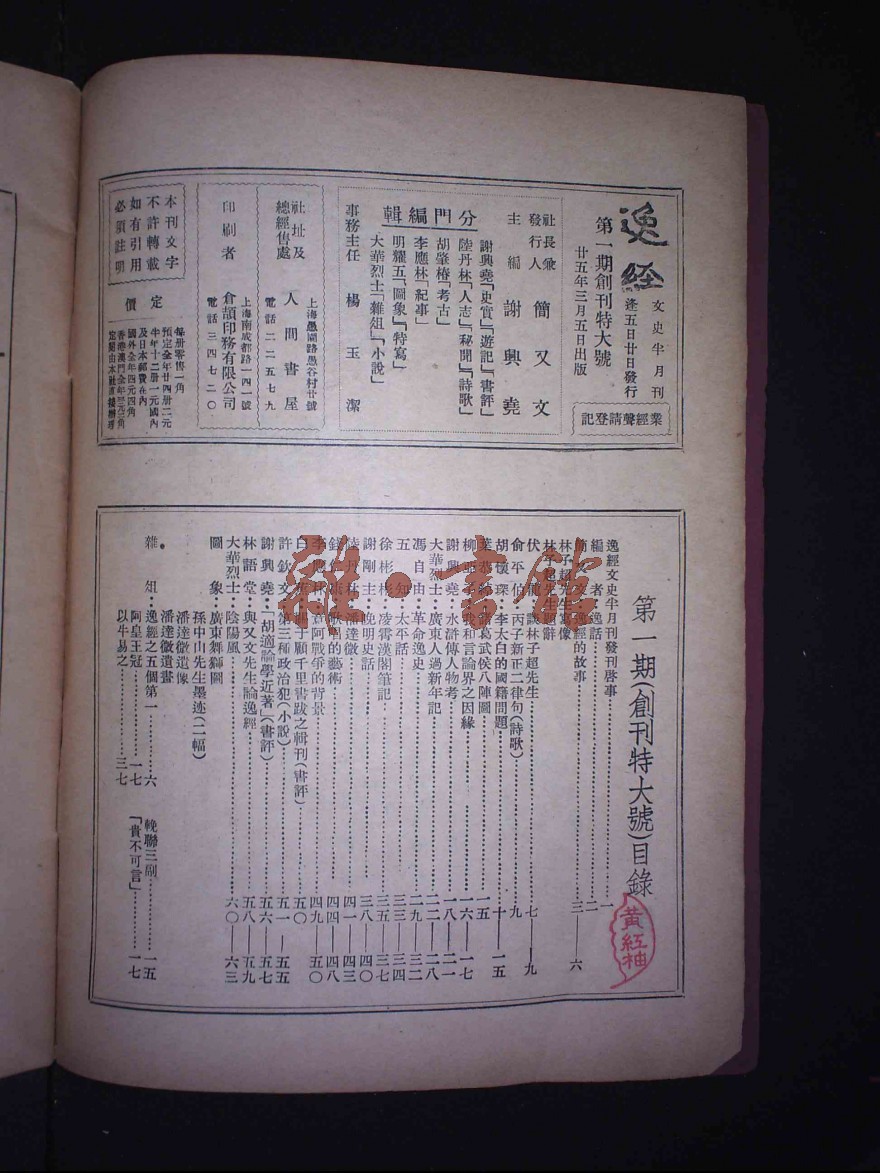 逸經
文史半月刊
逢五日廿日發行
第一期創刊特大號
廿五年三月五日出版
業經聲請登記
社長兼發行人 簡又文
主編 謝興堯
分門編輯
謝興堯「史實」「遊記」「書評」
陸丹林「人志」「秘聞」「詩歌」
胡肇椿「考古」
李應林「紀事」
明耀五「圖象」「特寫」
大華烈士「雜俎」「小說」
事務主任 楊玉潔
社址及總經售處
上海愚園路愚谷村廿號
人間書屋
電話二二五七九
印刷者
上海南成都路一四一號
倉頡印務有限公司
電話三四七二〇
本刊文字
不許轉載
如有引用
必須註明
定價
每冊零售一角
預定全年廿四冊二元
半年十二冊一元國內
及日本郵費在內
國外全年四元四角
第一期(創刊特大號)目錄
黃紅柚
逸經文史半月刊發刊啓事……一
編者:逸話……二
簡又文:逸經的故事……三——六
林子超先生寫像
林子超先生題辭
伏 談林子超先生……七——九
俞平伯:丙子新正二律句(詩歌)……九
胡懷琛:李太白的國籍問題……十——一五
葛武侯八陣圖……一五
柳亞子:我和言論界之因緣……一六——一七
謝興堯:水滸傳人物考……一八——二一
大華烈士:廣東人過新年記……二二——二八
馮自由:革命逸史……二九——三二
五知:太平話……三三——三四
徐彬彬:凌霄漢閣筆記……三五——三七
謝剛主:晚明史話……三八——四〇
陸丹林:潘達微……四一——四三
歌唱的藝術……四四——四八
李應林:意阿戰爭的背景……四九——五〇
顧千里書跋之輯刊(書評)……五〇
許欽文:第三種政治犯(小說)……五一——五五
謝興堯:「胡適論學近著」(書評)……五六——五七
林語堂:與又文先生論逸經……五八——五九
大華烈士:陰陽風……六〇——六三
圖象:廣東舞獅圖
孫中山先生墨迹(二幅)
潘達微遺像
潘達微遺書
雜俎:逸經之五個第一……六
阿皇王冠……一七
以牛易之……三七
輓聯三副……一五
「貴不可言」……一七
雜·書館